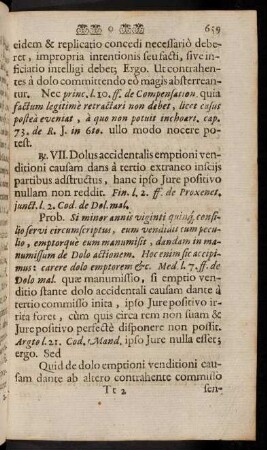 o 659
eidem & replicatio concedi necessariò debe-
ret, impropria intentionis seu facti, sive in-
ficiatio intelligi debet; Ergo. Ut contrahen-
tes à dolo committendo eò magis absterrean-
tur. Nec princ. l. 10. ff. de Compensation. quia
factum legitimè retractari non debet, licet casus
posteà eveniat, à quo non potuit inchoari. cap.
73. de R. J. in 6to. ullo modo nocere po-
test.
VII. Dolus accidentalis emptioni ven-
ditioni causam dans à tertio extraneo insciis
partibus adstructus, hanc ipso Jure positivo
nullam non reddit. Fin. l. 2. ff. de Proxenet.
junct. l. 2. Cod. de Dol. mal.
Prob. Si minor annis viginti quinq; consi-
lio servi circumscriptus, eum vendidit cum pecu-
lio, emptorque eum manumisit, dandam in ma-
numissum de Dolo actionem. Hoc enim sic accipi-
mus: carere dolo emptorem &c. Med. l. 7. ff. de
Dolo mal. quæ manumissio, si emptio ven-
ditio stante dolo accidentali causam dante à
tertio commisso inita, ipso Jure positivo ir-
rita foret, cùm quis circa rem non suam &
Jure positivo perfectè disponere non possit.
Argto l. 21. Cod. Mand. ipso Jure nulla esset;
ergo. Sed
Quid de dolo emptioni venditioni cau-
sam dante ab altero contrahente commisso
Tt 2 sen-